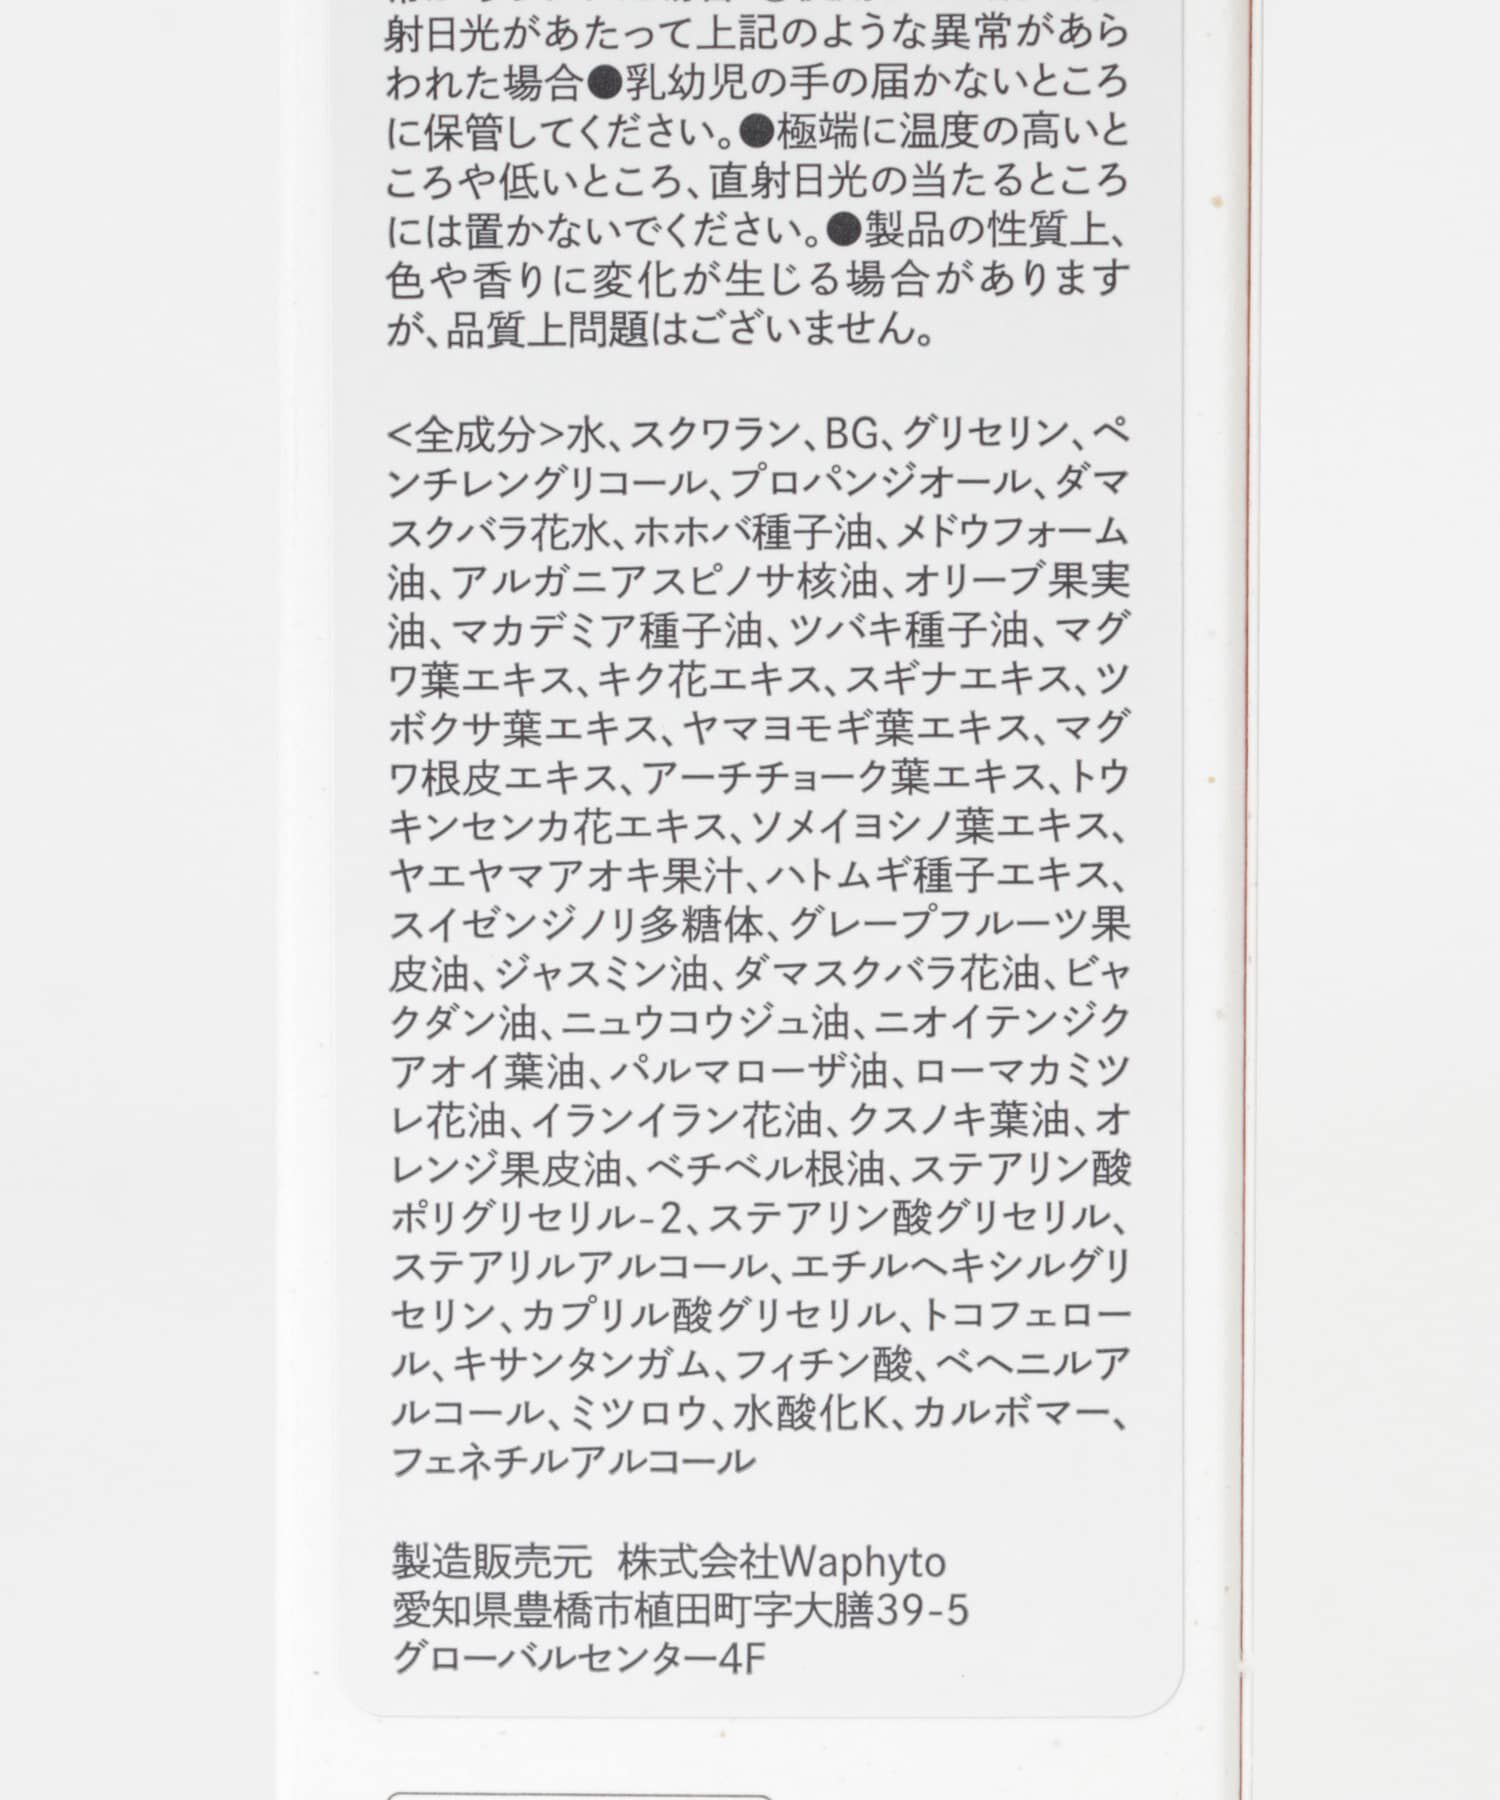 射日光があたって上記のような異常があら
われた場合●乳幼児の手の届かないところ
に保管してください。●極端に温度の高いと
ころや低いところ、直射日光の当たるところ
には置かないでください。●製品の性質上、
色や香りに変化が生じる場合があります
が、品質上問題はございません。
<全成分>水、スクワラン、BG、グリセリン、ペ
ンチレングリコール、プロパンジオール、ダマ
スクバラ花水、ホホバ種子油、メドウフォーム
油、アルガニアスピノサ核油、オリーブ果実
油、マカデミア種子油、ツバキ種子油、マグ
ワ葉エキス、キク花エキス、スギナエキス、ツ
ボクサ葉エキス、ヤマヨモギ葉エキス、マグ
ワ根皮エキス、アーチチョーク葉エキス、トウ
キンセンカ花エキス、ソメイヨシノ葉エキス、
ヤエヤマアオキ果汁、ハトムギ種子エキス、
スイゼンジノリ多糖体、グレープフルーツ果
皮油、ジャスミン油、ダマスクバラ花油、ビャ
クダン油、ニュウコウジュ油、ニオイテンジク
アオイ葉油、パルマローザ油、ローマカミツ
レ花油、イランイラン花油、クスノキ葉油、オ
レンジ果皮油、ベチベル根油、ステアリン酸
ポリグリセリル-2、ステアリン酸グリセリル、
ステアリルアルコール、エチルヘキシルグリ
セリン、カプリル酸グリセリル、トコフェロー
ル、キサンタンガム、フィチン酸、ベヘニルア
ルコール、ミツロウ、水酸化K、カルボマー、
フェネチルアルコール
製造販売元 株式会社Waphyto
愛知県豊橋市植田町字大膳39-5
グローバルセンター4F